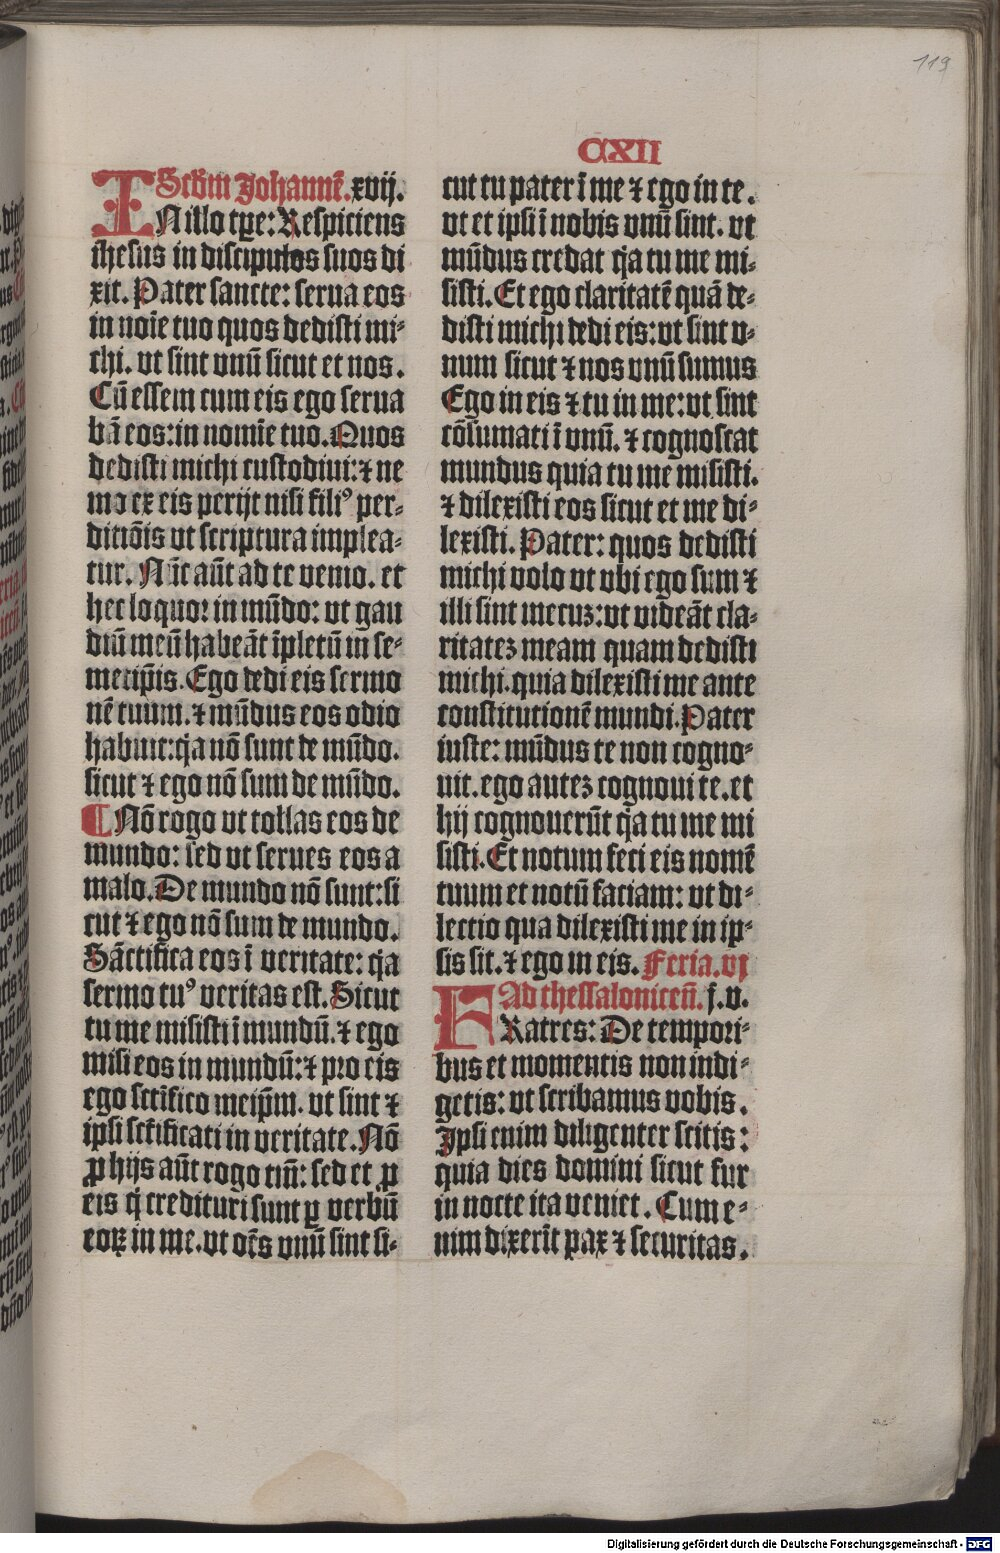 119
CXII
Scd̄m Johannē. xvij.
IN illo tꝑe: Respiciens
ihesus in discipulos suos di
xit. Pater sancte: serua eos
in noīe tuo quos dedisti mi⸗
chi. vt sint vnū sicut et nos.
Cū essem cum eis ego serua
bā eos: in nomīe tuo. Quos
dedisti michi custodiui: ⁊ ne
mo ex eis perijt nisi filiꝰ per⸗
ditiōis vt scriptura implea⸗
tur. Nūc aūt ad te venio. et
hec loquor in mūdo: vt gau
diū meū habeāt īpletū in se⸗
metip̄is. Ego dedi eis sermo
nē tuum. ⁊ mūdus eos odio
habuit: q̇a nō sunt de mūdo.
sicut ⁊ ego nō sum de mūdo.
¶ Nō rogo vt tollas eos de
mundo: sed vt serues eos a
malo. De mundo nō sunt: si
cut ⁊ ego nō sum de mundo.
Sāctifica eos ī veritate: q̇a
sermo tuꝰ veritas est. Sicut
tu me misisti ī mundū. ⁊ ego
misi eos in mundū: ⁊ pro eis
ego sct̄ifico meip̄m. vt sint ⁊
ipsi sct̄ificati in veritate. Nō
ꝓ hijs aūt rogo tm̄: sed et ꝓ
eis q̇ credituri sunt ꝑ verbū
eoꝝ in me. vt oēs vnū sint si⸗
cut tu pater ī me ⁊ ego in te.
vt et ipsi ī nobis vnū sint. vt
mūdus credat q̇a tu me mi⸗
sisti. Et ego claritatē quā de⸗
disti michi dedi eis: vt sint v⸗
num sicut ⁊ nos vnū sumus
Ego in eis ⁊ tu in me: vt sint
cōsumati ī vnū. ⁊ cognoscat
mundus quia tu me misisti.
⁊ dilexisti eos sicut et me di⸗
lexisti. Pater: quos dedisti
michi volo vt vbi ego sum ⁊
illi sint mecuz: vt videāt cla⸗
ritatez meam quam dedisti
michi. quia dilexisti me ante
constitutionē mundi. Pater
iuste: mūdus te non cogno⸗
uit. ego autez cognoui te. et
hij cognouerūt q̇a tu me mi
sisti. Et notum feci eis nomē
tuum et notū faciam: vt di⸗
lectio qua dilexisti me in ip⸗
sis sit. ⁊ ego in eis. Feria. vj
Ad thessalonicen̄. j. v.
FRatres: De tempori⸗
bus et momentis non indi⸗
getis: vt scribamus vobis.
Ipsi enim diligenter scitis:
quia dies domini sicut fur
in nocte ita veniet. Cum e⸗
nim dixerīt pax ⁊ securitas.
Digitalisierung gefördert durch die Deutsche Forschungsgemeinschaft - DFG